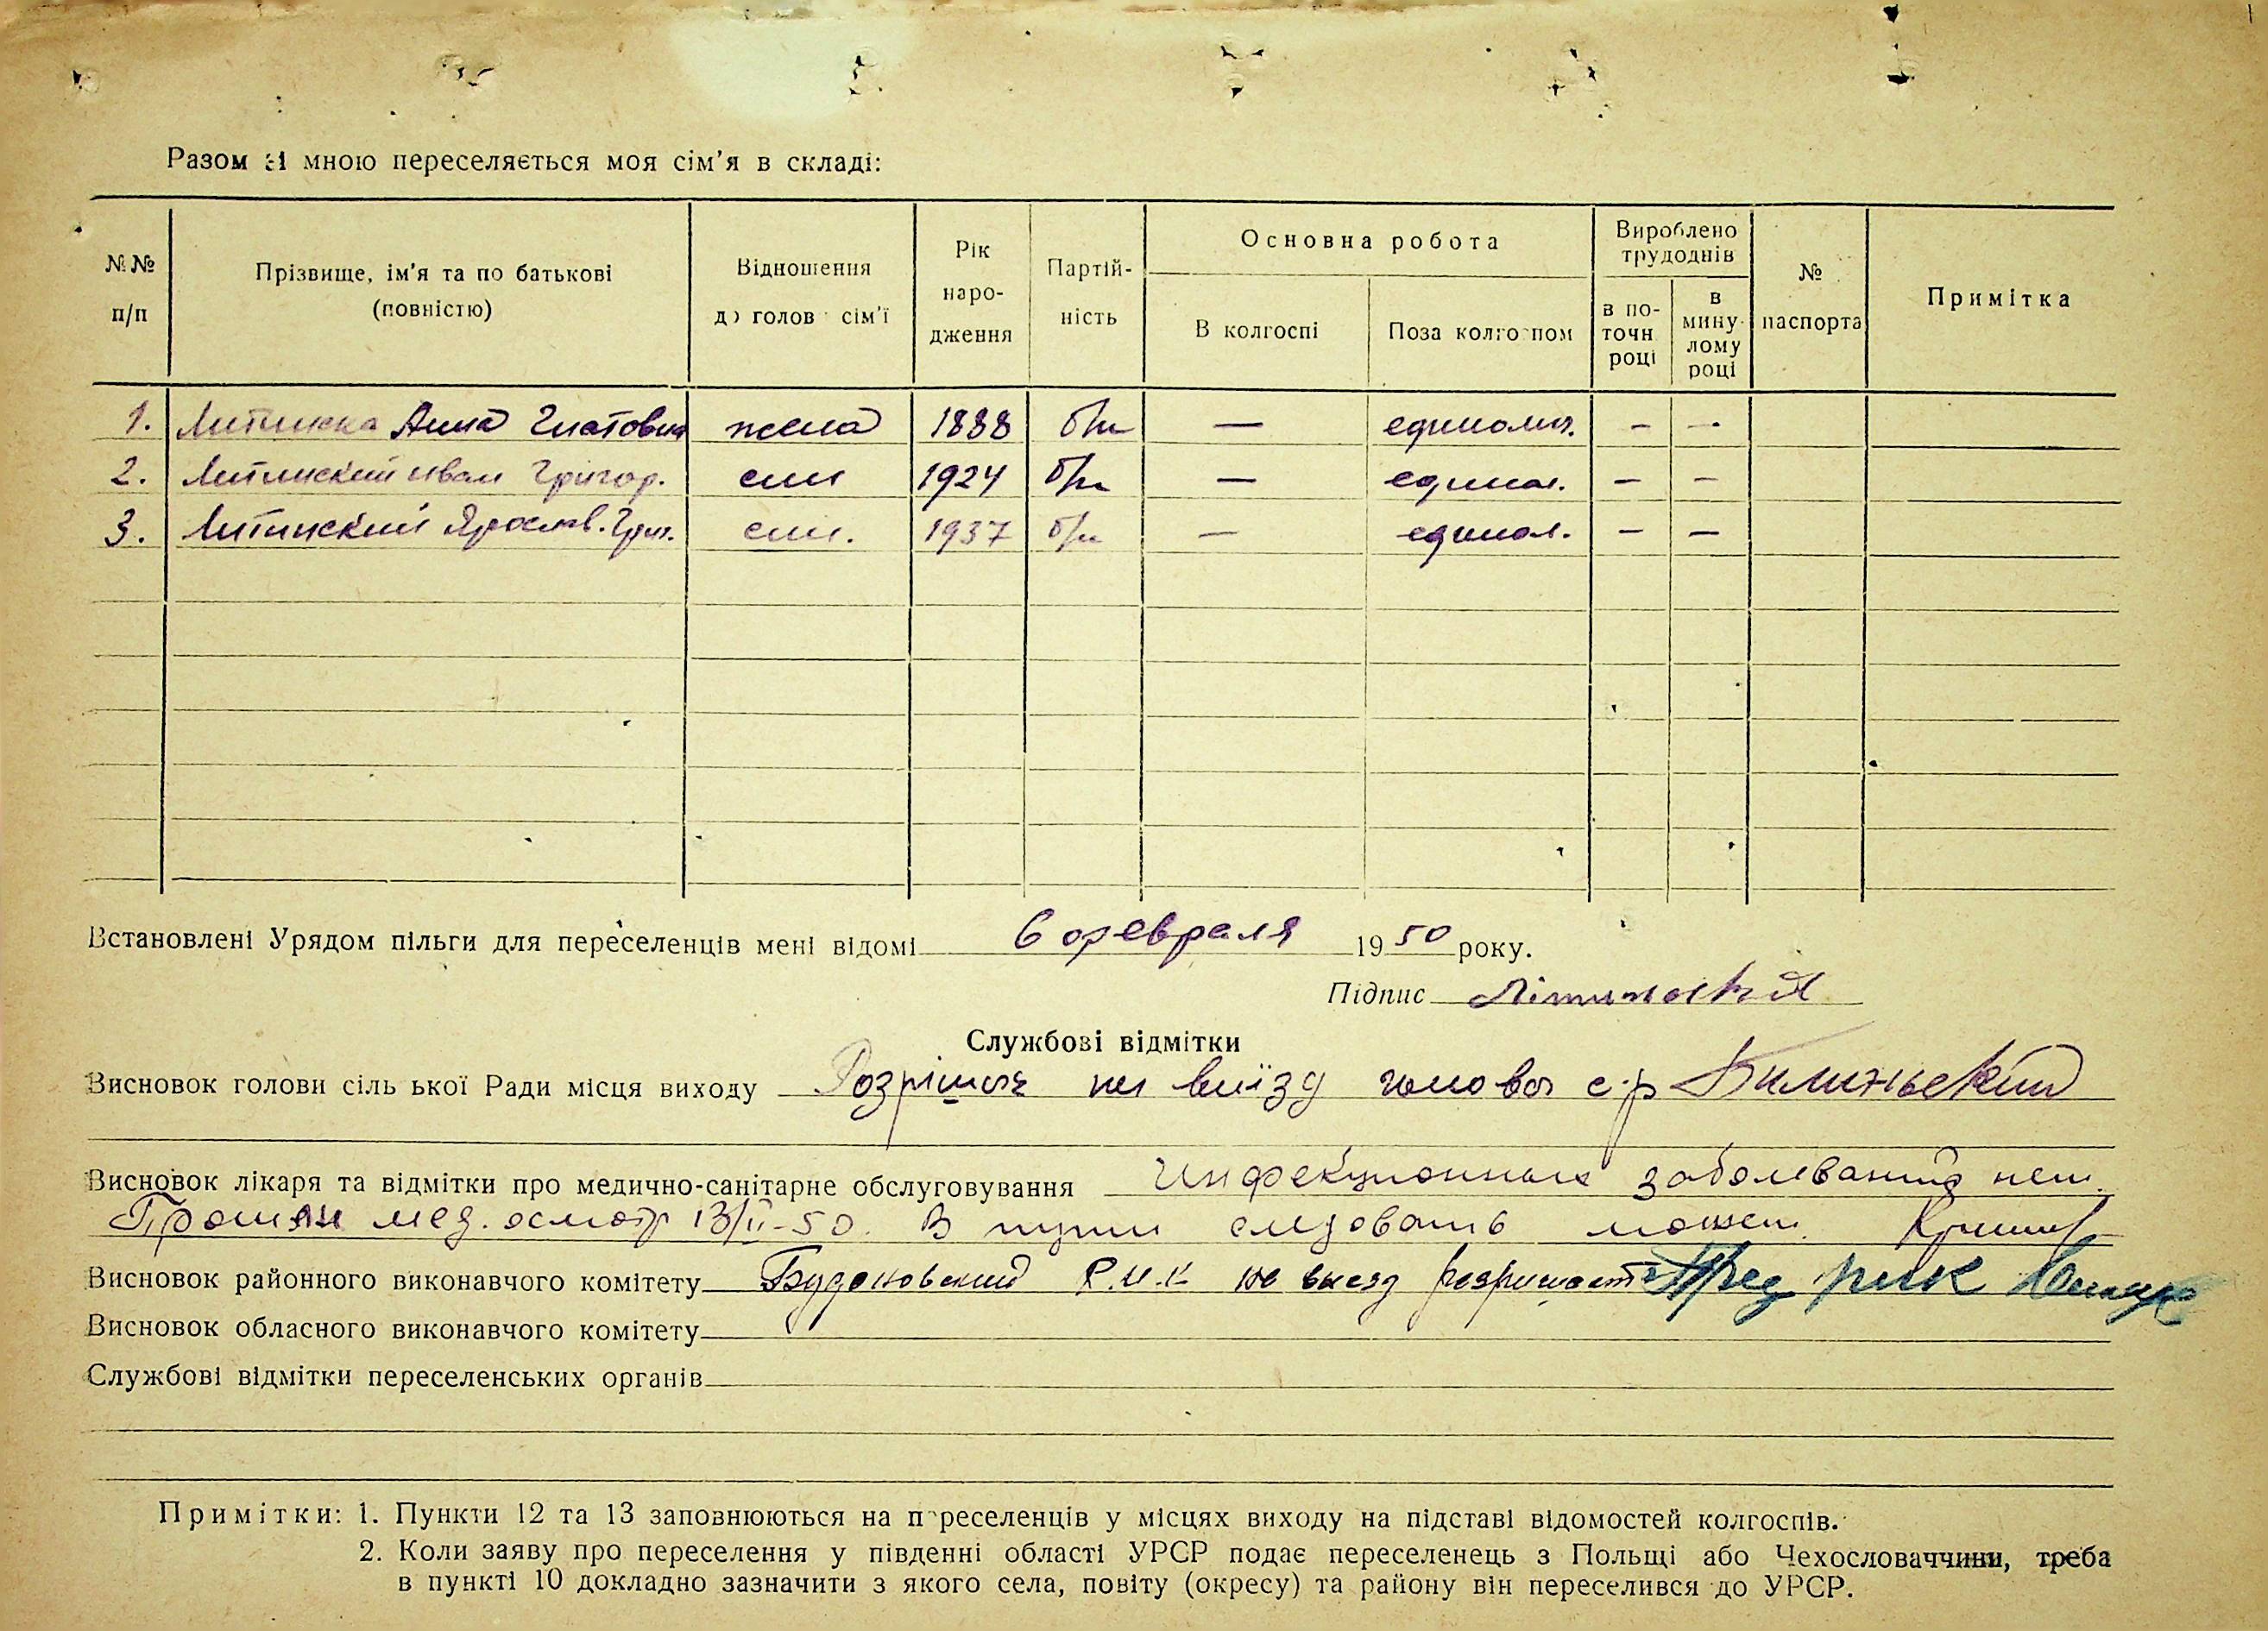 Разом зі мною переселяється моя сім'я в складі:
№№ п/п
Прізвище, ім'я та по батькові (повністю)
Відношення до голов сім'ї
Рік народження
Партійність
Основна робота
В колгоспі
Поза колгоспом
Вироблено трудоднів
в поточн році
в минулому році
№ паспорта
Примітка
1. Литинска Анна Гнатовна жена 1888 б/п — единолич. – –
2. Литинский Иван Григор. син 1924 б/п — единол. – –
3. Литинский Ярослав. Григ. син. 1937 б/п — единол. – –
Встановлені Урядом пільги для переселенців мені відомі 6 февраля 1950 року.
Підпис
Службові відмітки
Висновок голови сільської Ради місця виходу Розрішає на виїзд голова с.р
Висновок лікаря та відмітки про медично-санітарне обслуговування Инфекционных заболеваний нет.
мед. осмотр 13/II-50. В пути следовать может.
Висновок районного виконавчого комітету Будановский Р.И.К на выезд Пред рик
Висновок обласного виконавчого комітету
Службові відмітки переселенських органів
Примітки: 1. Пункти 12 та 13 заповнюються на переселенців у місцях виходу на підставі відомостей колгоспів.
2. Коли заяву про переселення у південні області УРСР подає переселенець з Польщі або Чехословаччини, треба
в пункті 10 докладно зазначити з якого села, повіту (окресу) та району він переселився до УРСР.